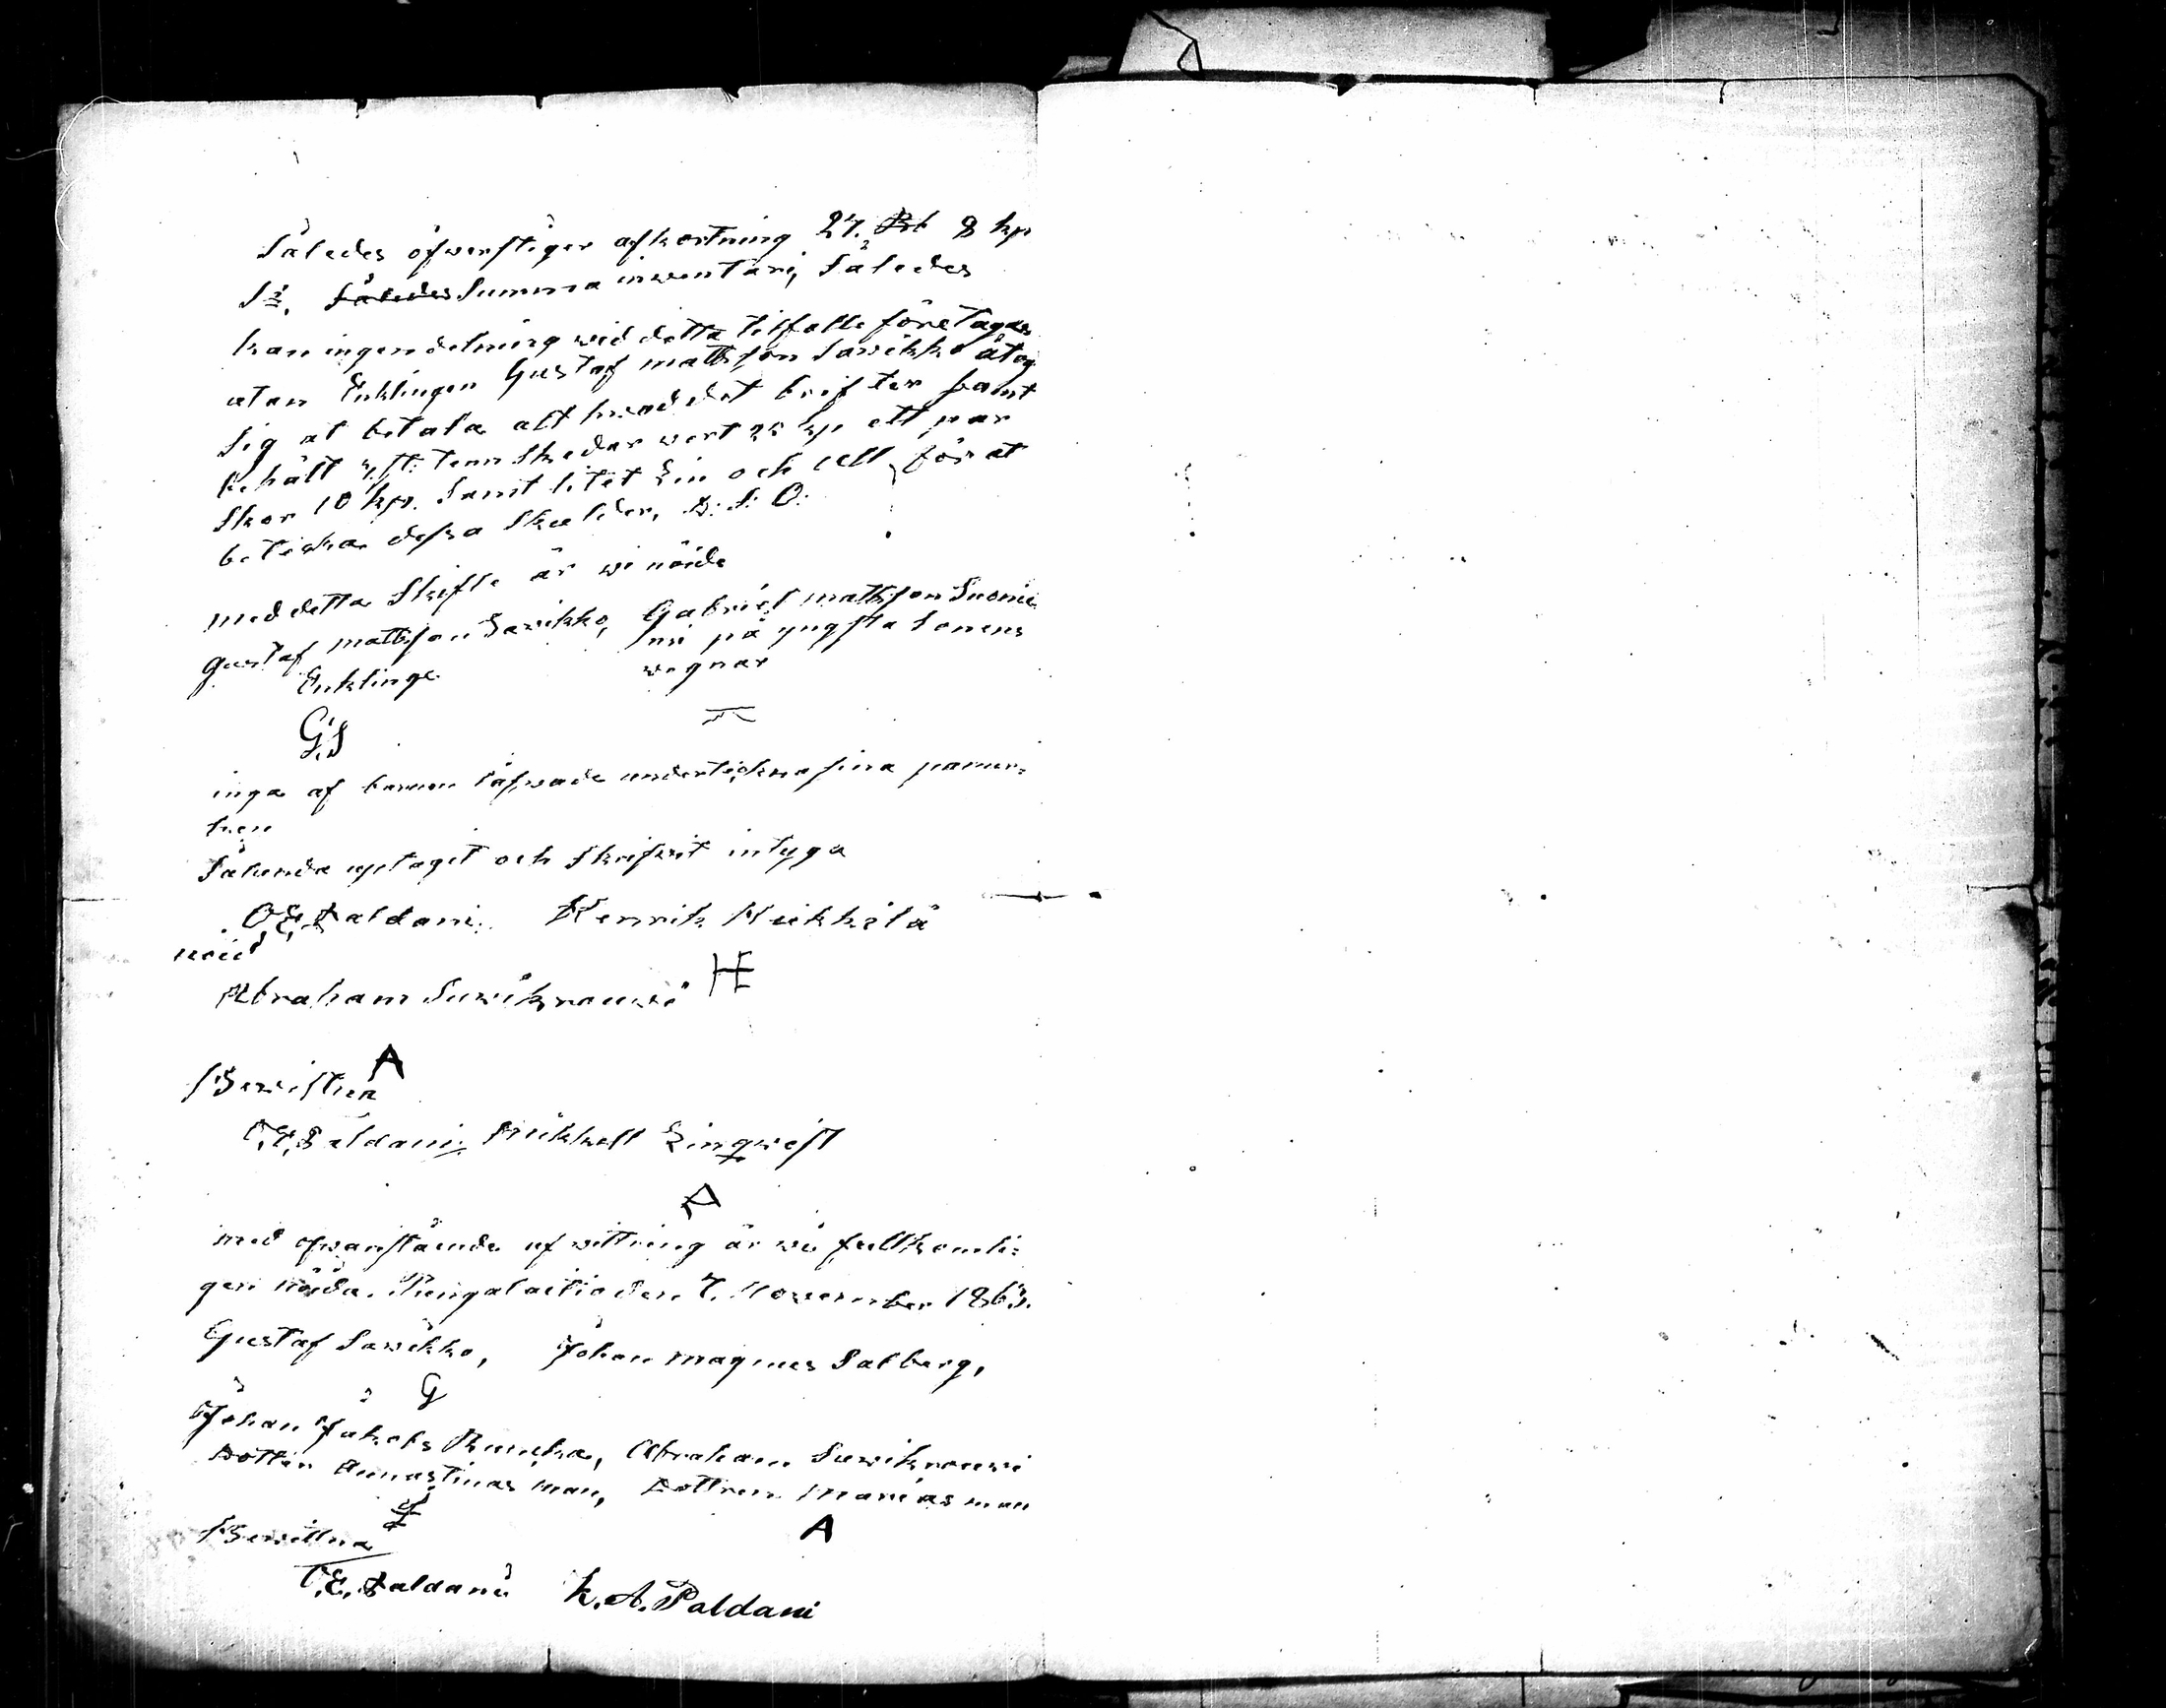 Således öfwerstiger afkortning 27. Rb 8 kp
Sr. Således Summa inwentari, Således
kan ingen delning wid detta tilfälle företagas
utan Enklingen Gustaf mattsson Sawikko åtog
sig at betala alt hwad det brister samt
behält 4 st. tenn Skedar wert 25 kp ett par
Skor 10 kp. Samt litet Lin och Ull för at
betäcka dessa Skulder, D: S: O:
med detta Skifte är wi nöide
Gustaf mattsson Sawikko, Gabriel mattsson Suomi
nsi på yngsta Sonens
Enklinge wegnar
G.S
inga af barnen täcktes underteckna sina namn-
Sålunda uptagit och Skrifwit intyga
O.E. Paldani. Henrik Heikkilä
nöid
Abraham Suwiknouwi HE
A
Bewistna
O.E. Paldani. Mikkell Linqwist
A
med ofwanstående afwittring är wi fullkomli-
gen nöida. Pungalaitio den 7. November 1863.
Gustaf Sawikko, Johan Magnus Salberg,
G
Johan Jakobs Runika, Abraham Suwiknouwi
Dotter Annastinas man, Dottren Marias man
A
Bewittna
O.E. Paldani K. A. Paldani